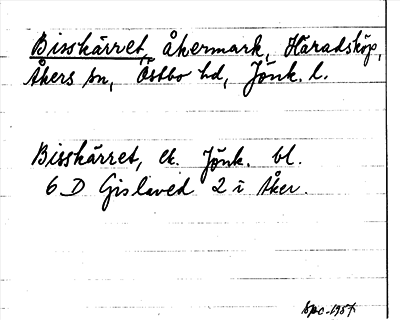 Bisskärret, åkermark, Häradsköp,
Åkers sn, Östbo hd, Jönk. l.
Bisskärret, ek. Jönk. bl.
6 D Gislaved 2 i Åker.